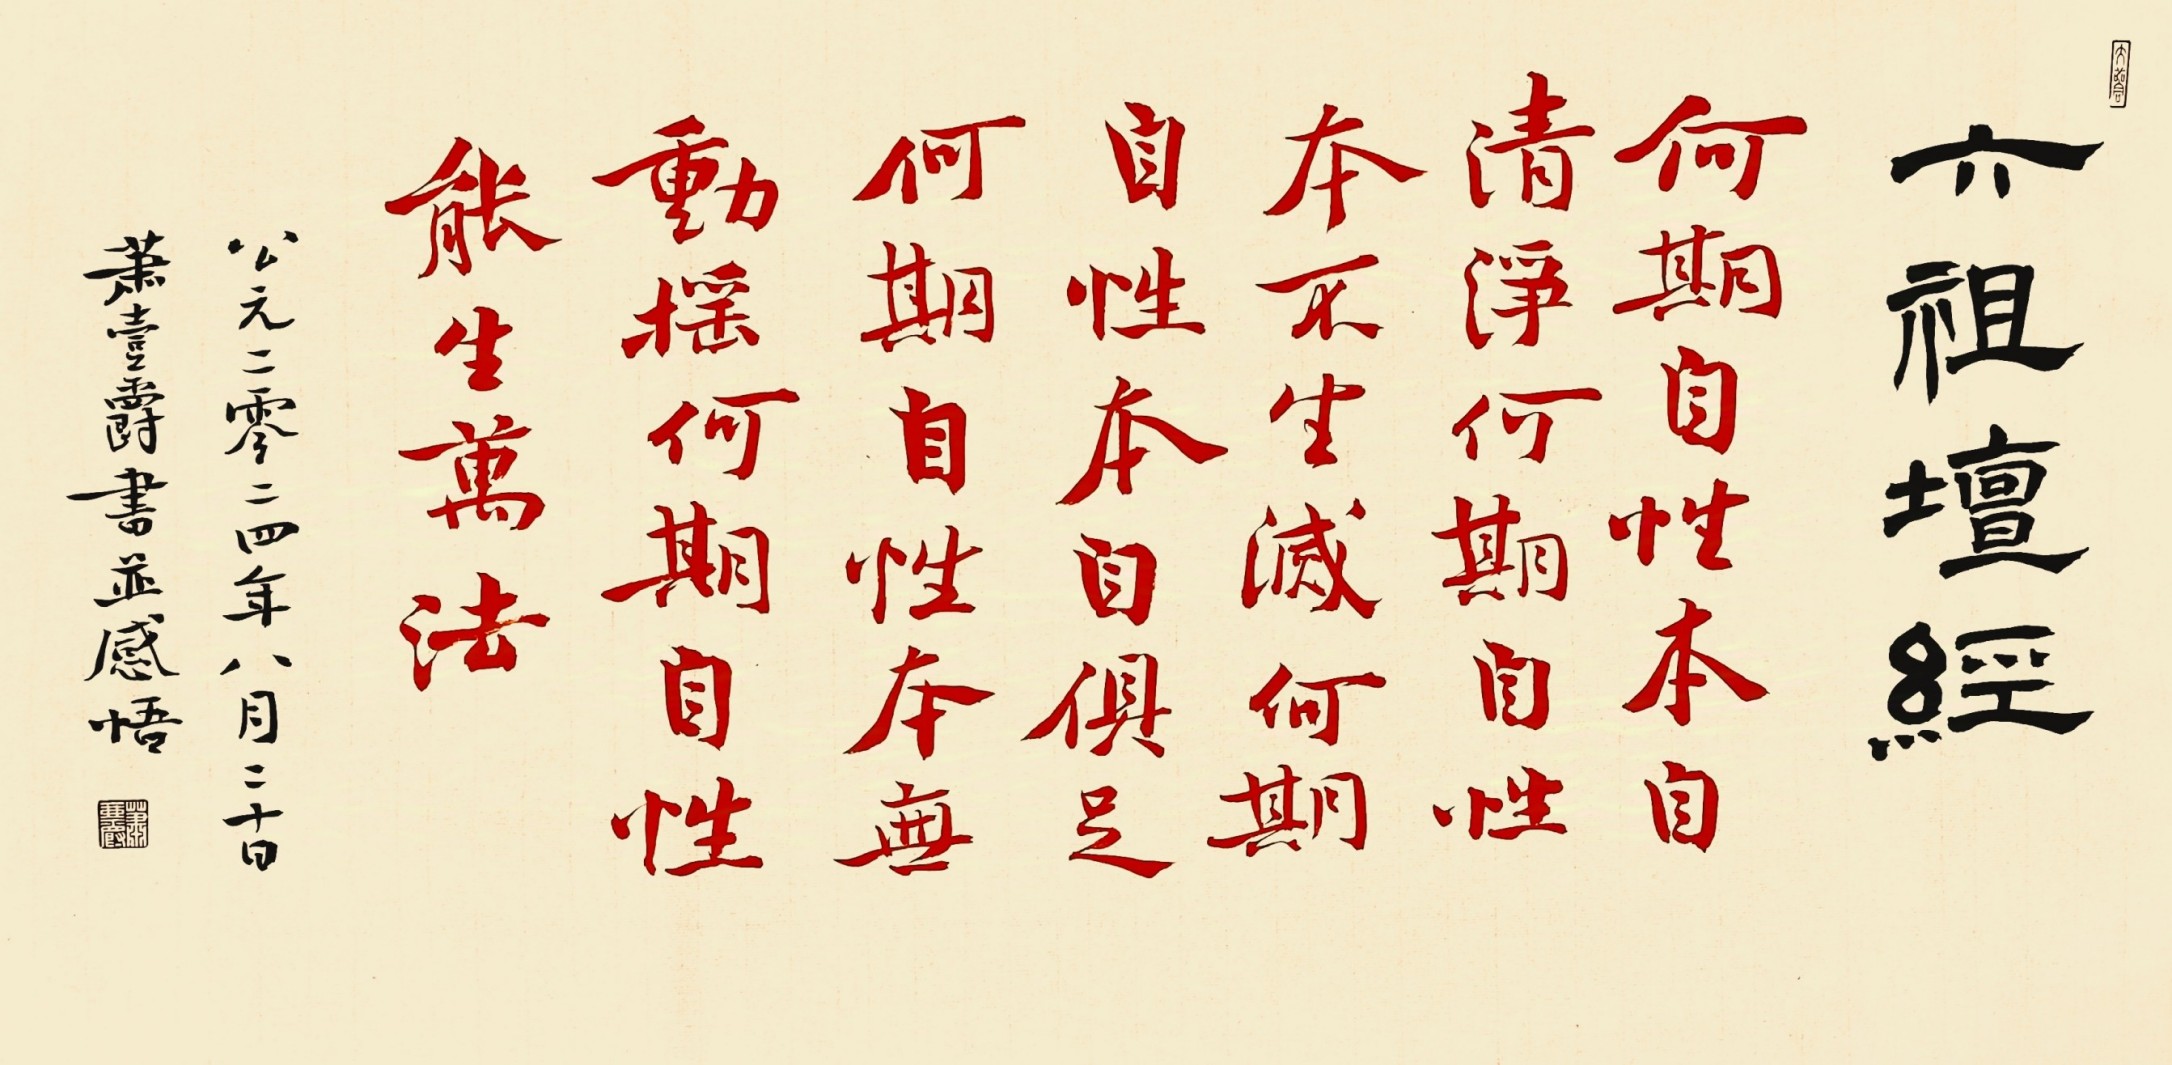 六祖壇經
何期自性本自
清淨何期自性
本不生滅何期
自性本自俱足
何期自性本無
動搖何期自性
能生萬法
公元二零二四年八月二十日
萧壹爵書並感悟